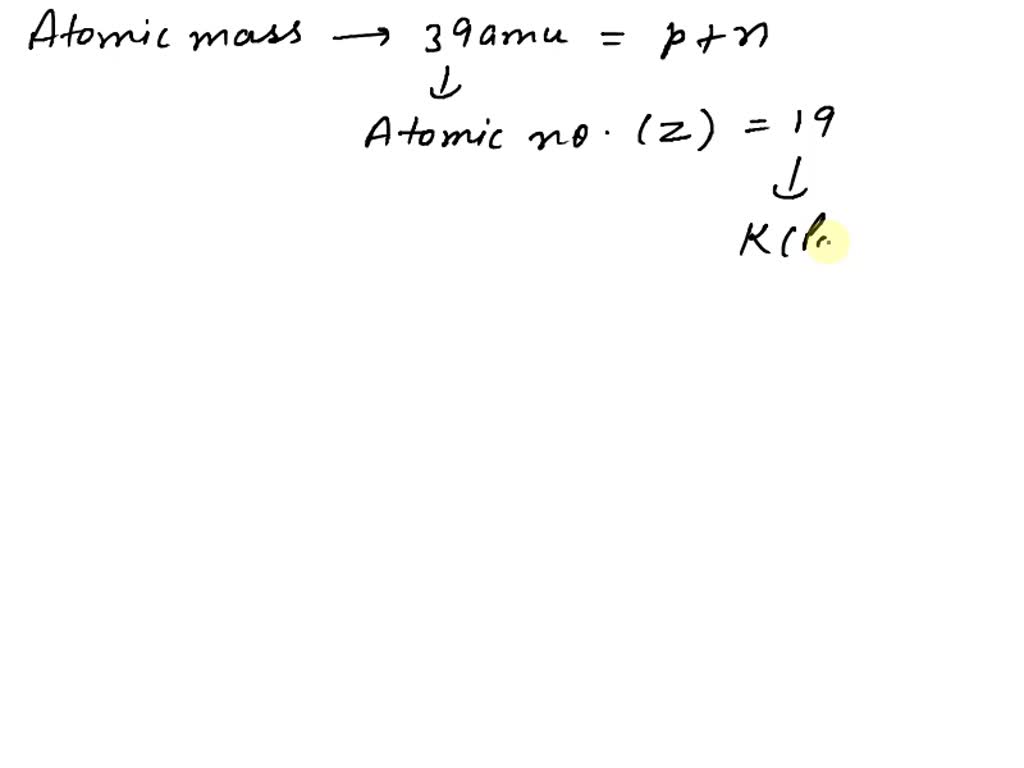 Atomic mass → 39amu = p+n
↓
Atomic no. (Z) = 19
↓
K (